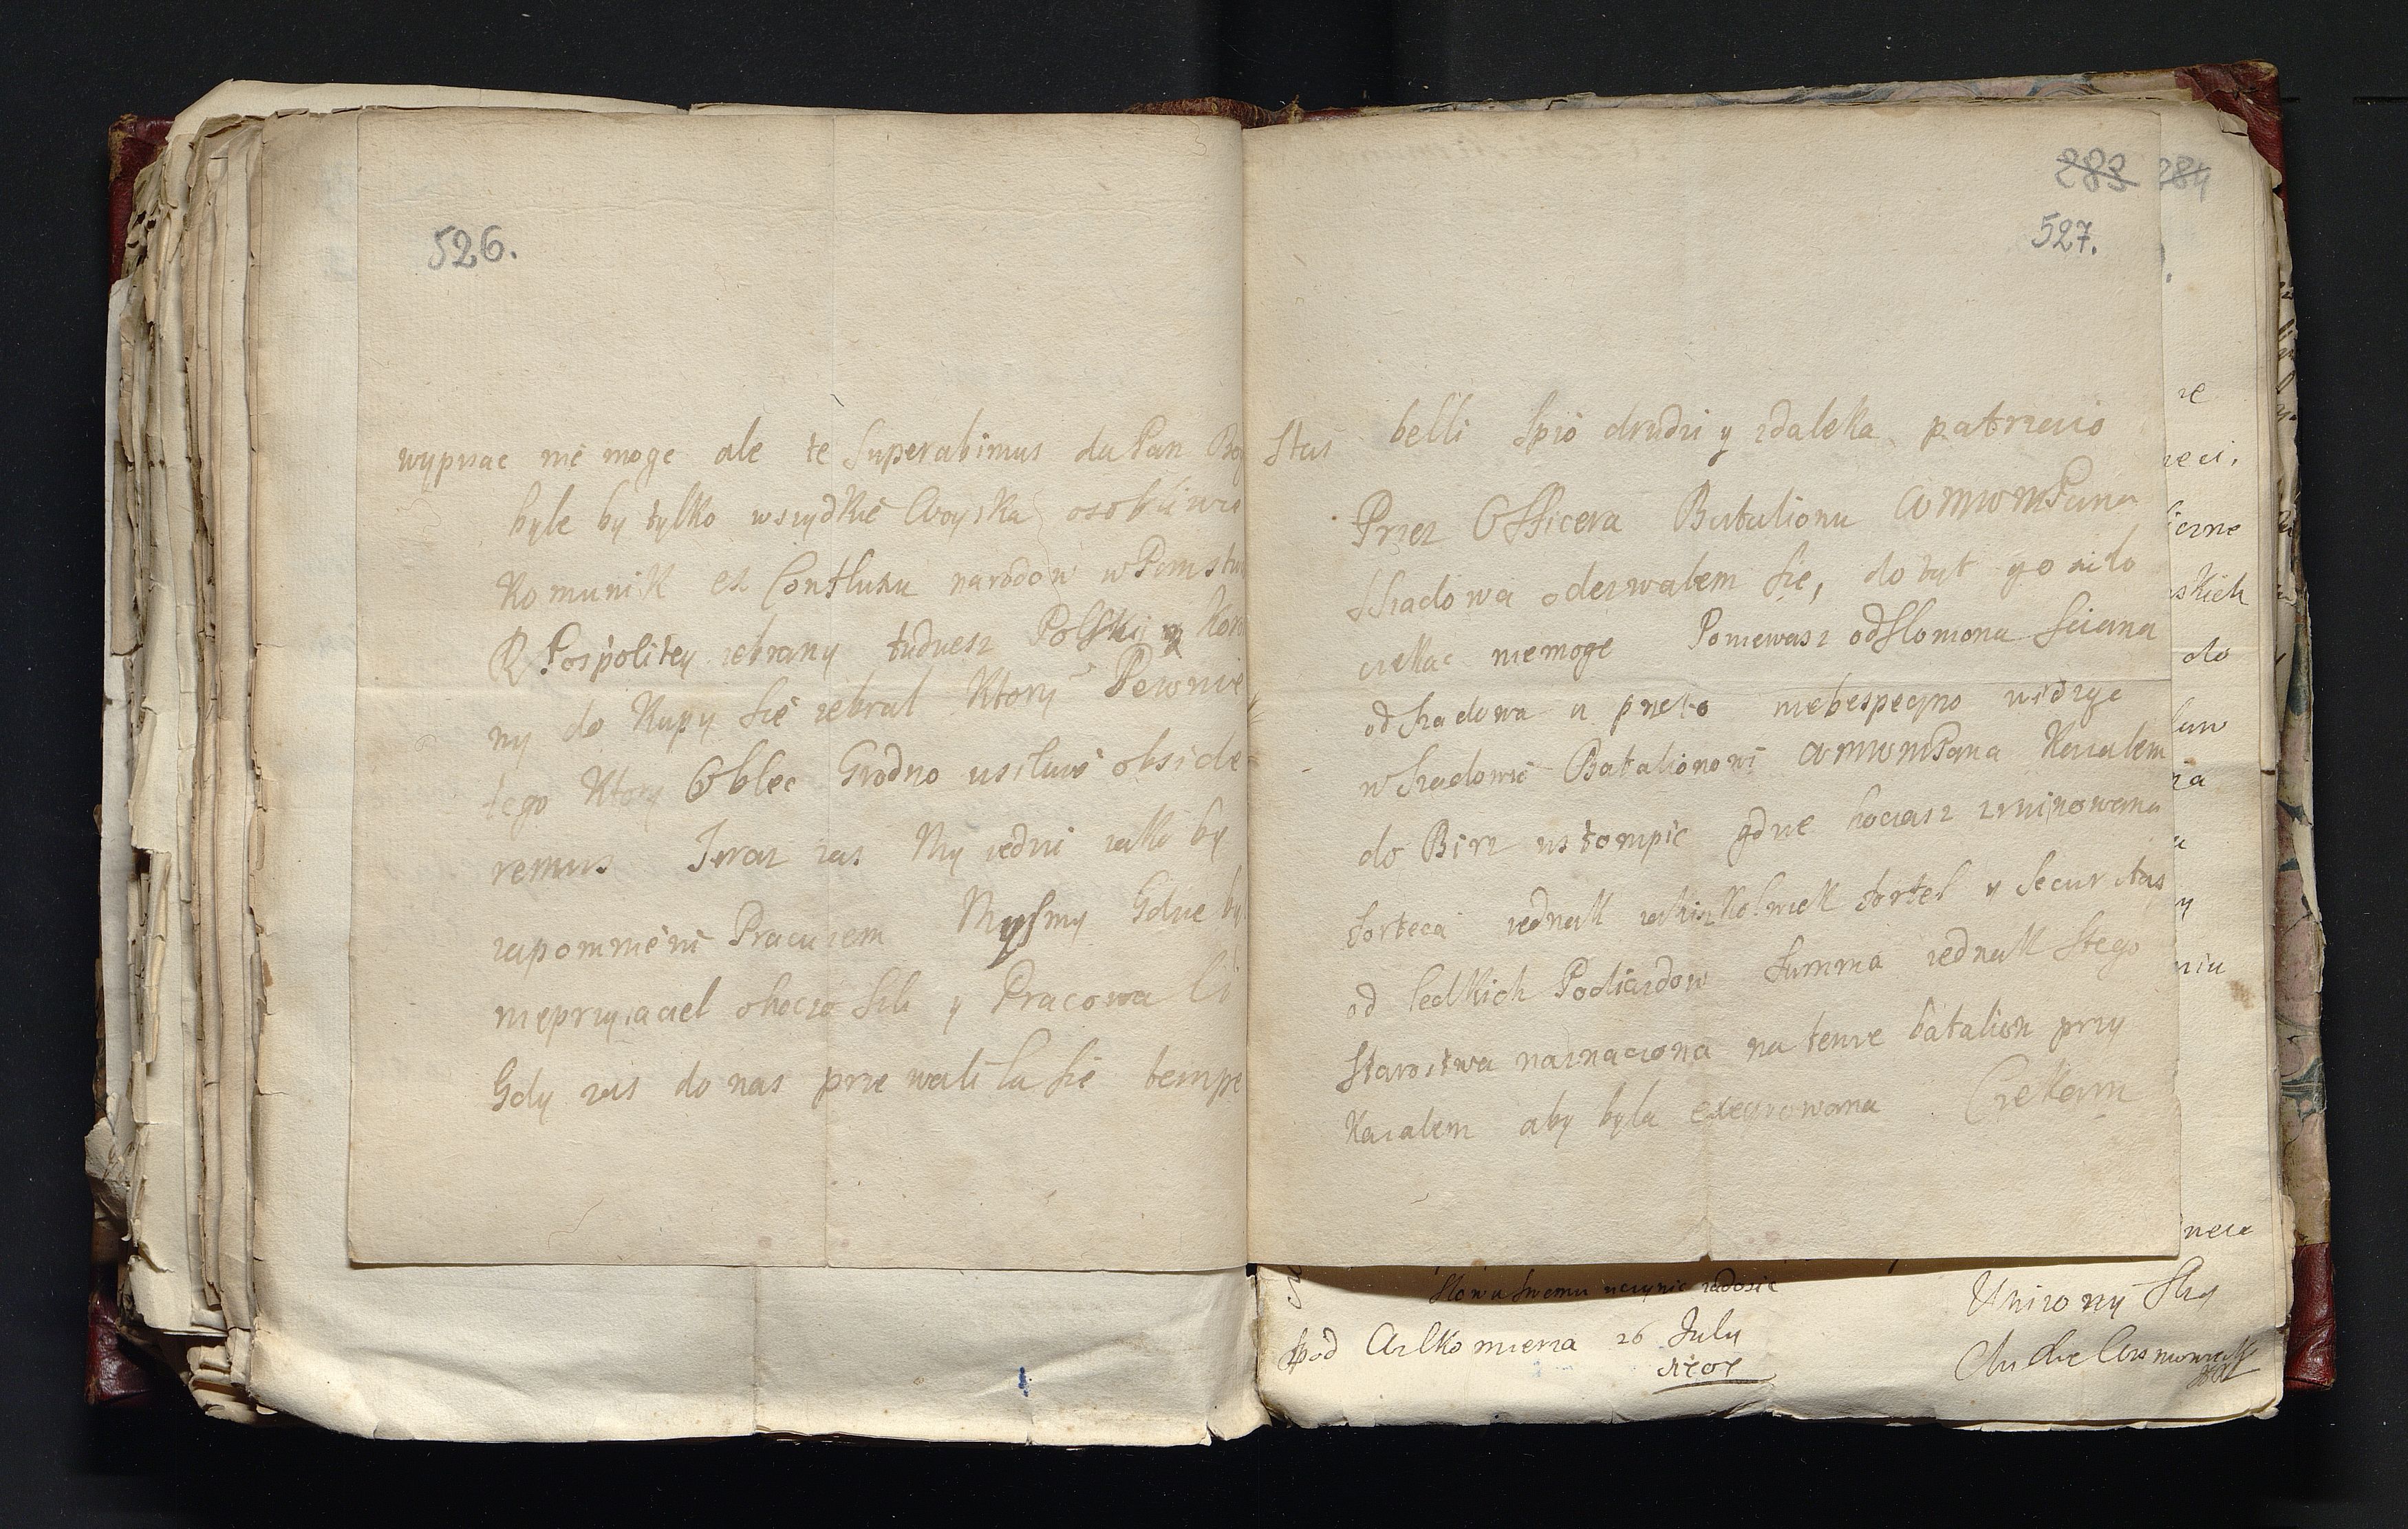 526.
wypisac nie moge ale te Superabimus da Pan Bog
byle by tylko wszydkie Woyska osobliwie
Komunik ex Confluxu narodow w Panstw
R Pospolitey zebrany tudziesz Polski y Kon
ny do Kupy sie zebral Ktory Pewnie
tego Ktory Oblec Grodno usiluie obside
remus Teraz zas My iedni iako by
zapomnieni Pracuiem Mysmy Gdzie by
nieprzyiaciel ohoczo szli y Pracowali
Gdy zas do nas przewalila sie tempe
283 284
527.
stas belli spio drudzi y zdaleka patrzaio
Przez Officera Batalionu WMWMPana
Szadowa odezwalem sie, dotyt go nido
czekac niemoge Poniewasz odslomona sciana
od Szadowa a przeto niebespeczno widzyc
w Szadowie Batalionowi WMWMPana Kazalem
do Birz ustompic gdzie hociasz zruinowana
forteca iednak iakiszkolwiek fortel y securitas
od ledkich Podiazdow summa iednak stego
Starostwa naznaczona na tenze batalion przy
Kazalem aby byla exeqwowana Czekam
ze
skich
do
slowu swemu uczynic zadosic
Spod Wilkomierza 26 July
Unizony Slu